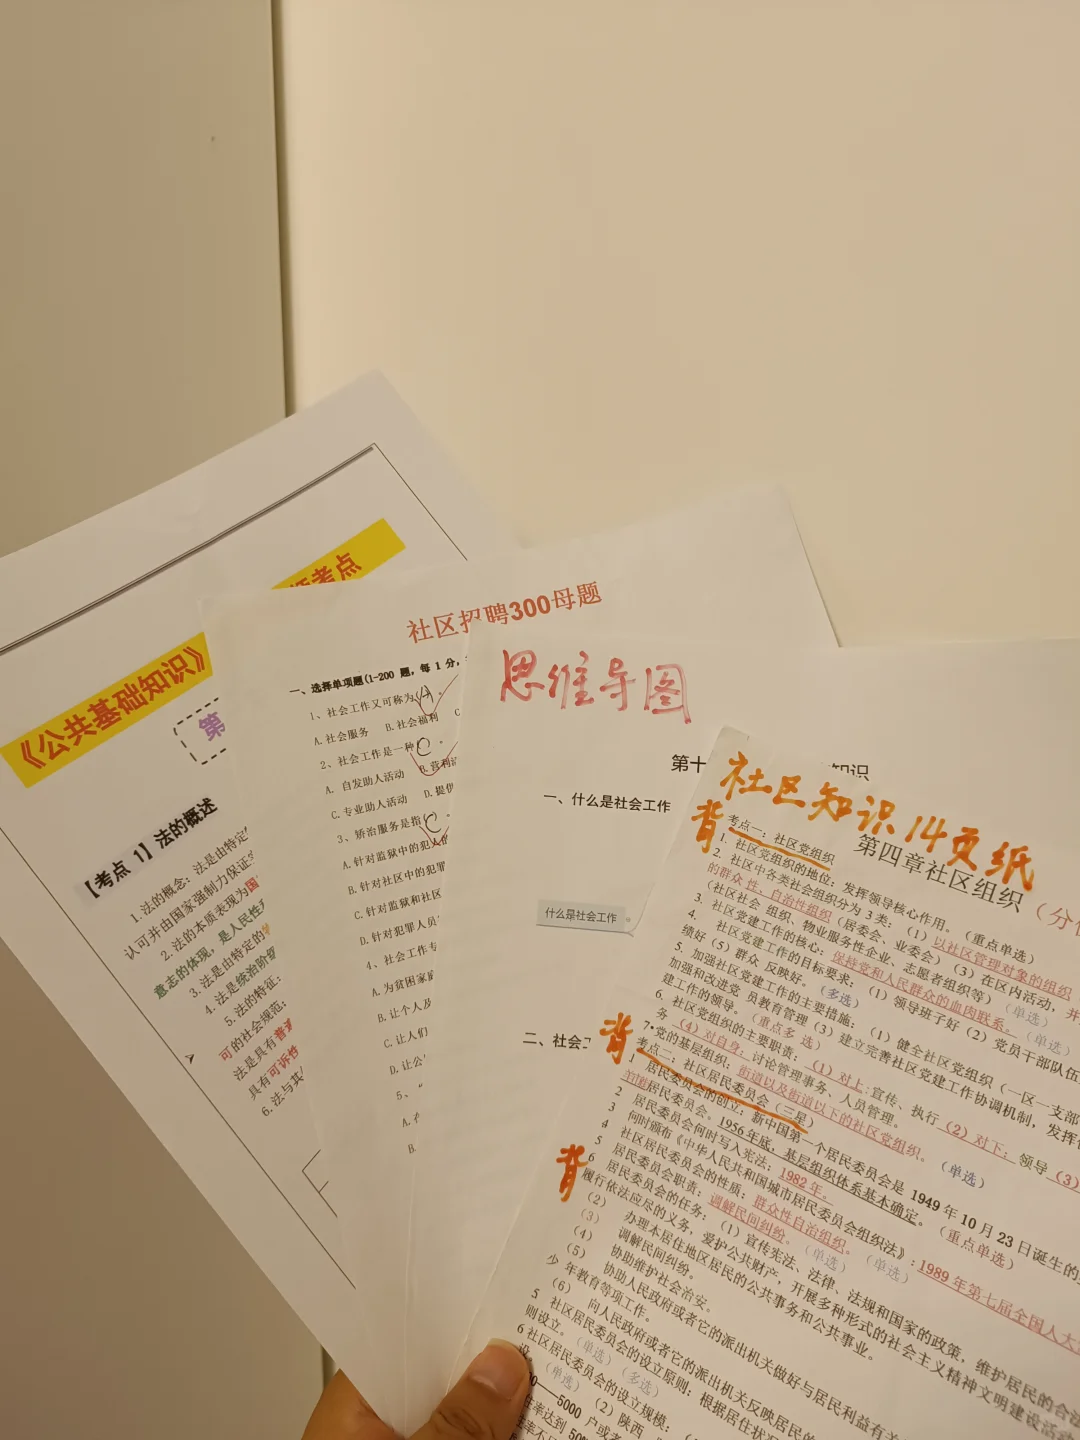 考点
《公共基础知识》
第
【考点 1】法的概述
1. 法的概念：法是由特定
认可并由国家强制力保证
2. 法的本质表现为国
意志的体现，是人民性
3. 法是由特定的
4. 法是统治阶
5. 法的特征：
可的社会规范；
法是具有普
具有可诉性
6. 法与其
社区招聘300母题
一、选择单项题(1-200 题，每 1 分，
1、社会工作又可称为(A)。
A.社会服务 B.社会福利 C
2、社会工作是一种(C)。
A. 自发助人活动 B.营利
C.专业助人活动 D.提供
3、矫治服务是指(C
A.针对监狱中的犯人
B.针对社区中的犯罪
C.针对监狱和社区
D.针对犯罪人员
4、社会工作专
A.为贫困家
B.让个人及
C.让人们
D.让公
5、“
A.
B.
思维导图
第十 知识
一、什么是社会工作
什么是社会工作
二、社会
社区知识14页纸
第四章社区组织（分
背
考点一：社区党组织
1. 社区党组织的地位：发挥领导核心作用。（重点单选）
2. 社区中各类社会组织分为 3 类：（1）以社区管理对象的组织
的群众 性、自治性组织（居委会、业委会）（3）在区内活动，并
（社区社会 组织、物业服务性企业、志愿者组织等）（单选）
3. 社区党建工作的核心：保持党和人民群众的血肉联系。（单选）
4. 社区党建工作的目标要求：（1）领导班子好（2）党员干部队伍
绩好（5）群众 反映好。（多选）
5. 加强社区党建工作的主要措施：（1）健全社区党组织（一区一支部
加强和改进党 员教育管理（3）建立完善社区党建工作协调机制，发挥
建工作的领导。（重点多 选）
6. 社区党组织的主要职责：（1）对上：宣传、执行（2）对下：领导（3）
务 （4）对自身：讨论管理事务、人员管理。
7·党的基层组织：街道以及街道以下的社区党组织。（单选）
背
考点二：社区居民委员会（三星）
1 居民委员会的创立：新中国第一个居民委员会是 1949 年 10 月 23 日诞生的
居民委员会。1956年底，基层组织体系基本确定。（重点单选）
2 居民委员会何时写入宪法：1982 年。
3 何时颁布《中华人民共和国城市居民委员会组织法》：1989 年第七届全国人大
4 社区居民委员会的性质：群众性自治组织。（单选）
5 居民委员会职责：调解民间纠纷。（单选）
背
6 居民委员会的任务：（1）宣传宪法、法律、法规和国家的政策，维护居民的合法
履行依法应尽的义务，爱护公共财产，开展多种形式的社会主义精神文明建设活动
（2） 办理本居住地区居民的公共事务和公共事业。
（3） 调解民间纠纷。
（4） 协助维护社会治安。
（5） 协助人民政府或者它的派出机关做好与居民利益有关
少 年教育等项工作。
（6） 向人民政府或者它的派出机关反映居民的
5 社区居民委员会的设立原则：根据居住状况
则设立。（单选）（多选）
6 社区居民委员会的设立规模：
设 （单选） （2）陕西
00—5000 户或者
率达到 50%